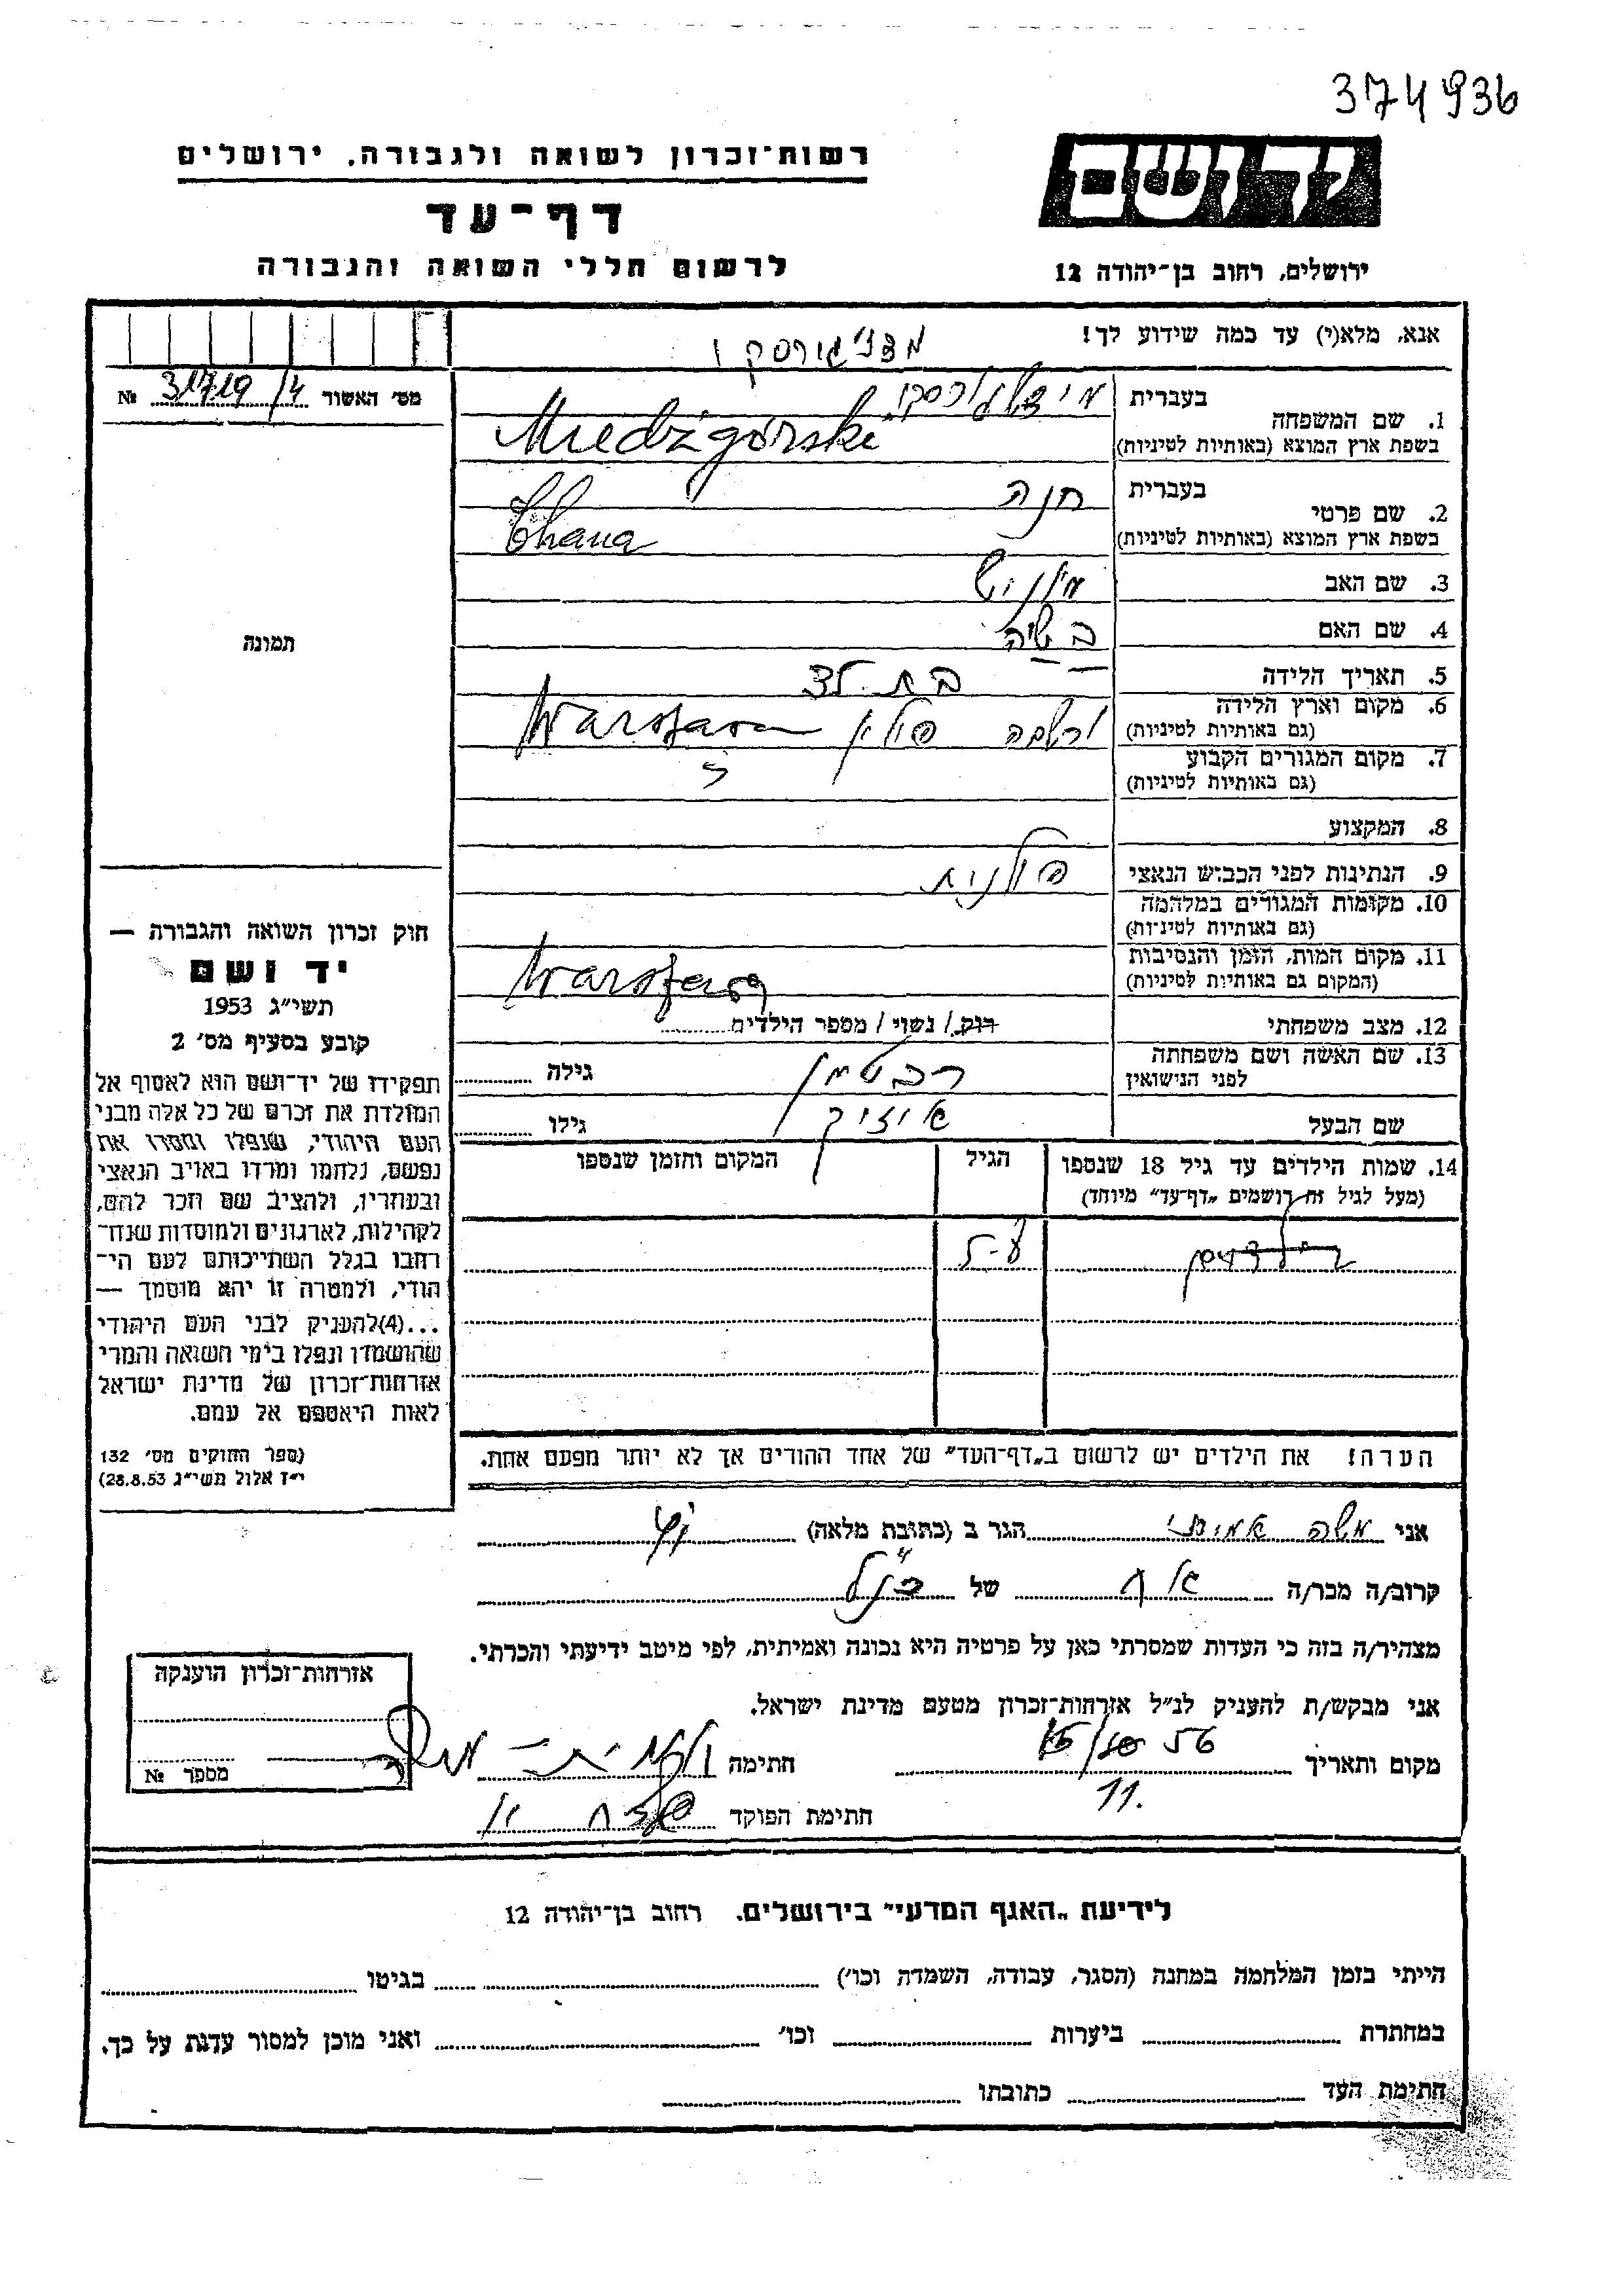 374936
רשות־זכרון לשואה ולגבורה, ירושלים
יד ושם
דף־עד
לרשום חללי השואה והגבורה
ירושלים, רחוב בן־יהודה 12
אנא, מלא(י) עד כמה שידוע לך!
מס׳ האשור 31719/4 №
בעברית
1. שם המשפחה
בשפת ארץ המוצא (באותיות לטיניות) Miedzigórski
בעברית חנה
2. שם פרטי
בשפת ארץ המוצא (באותיות לטיניות) Chana
3. שם האב
4. שם האם בשיה
תמונה
5. תאריך הלידה בת
6. מקום וארץ הלידה ורשבה פולין Warszawa
(גם באותיות לטיניות)
7. מקום המגורים הקבוע
(גם באותיות לטיניות)
8. המקצוע
9. הנתינות לפני הכבוש הנאצי פולנית
10. מקומות המגורים במלחמה
(גם באותיות לטיניות)
11. מקום המות, הזמן והנסיבות Warszawa
(המקום גם באותיות לטיניות)
12. מצב משפחתי רוק/ נשוי/ מספר הילדים
13. שם האשה ושם משפחתה רבטמן גילה
לפני הנישואין
שם הבעל איזיק גילו
14. שמות הילדים עד גיל 18 שנספו הגיל המקום והזמן שנספו
(מעל לגיל זה רושמים „דף־עד״ מיוחד)
הערה! את הילדים יש לרשום ב„דף־העד״ של אחד ההורים אך לא יותר מפעם אחת.
חוק זכרון השואה והגבורה —
יד ושם
תשי״ג 1953
קובע בסעיף מס׳ 2
תפקידו של יד־ושם הוא לאסוף אל
המולדת את זכרם של כל אלה מבני
העם היהודי, שנפלו ומסרו את
נפשם, נלחמו ומרדו באויב הנאצי
ובעוזריו, ולהציב שם וזכר להם,
לקהילות, לארגונים ולמוסדות שנח־
רבו בגלל השתייכותם לעם הי־
הודי, ולמטרה זו יהא מוסמך —
...(4)להעניק לבני העם היהודי
שהושמדו ונפלו בימי השואה והמרי
אזרחות־זכרון של מדינת ישראל
לאות היאספם אל עמם.
(ספר החוקים מס׳ 132
י״ז אלול תשי״ג 28.8.53)
אני משה אמיתי הגר ב (כתובת מלאה)
קרוב/ה מכר/ה אח של הנ״ל
מצהיר/ה בזה כי העדות שמסרתי כאן על פרטיה היא נכונה ואמיתית, לפי מיטב ידיעתי והכרתי.
אני מבקש/ת להעניק לנ״ל אזרחות־זכרון מטעם מדינת ישראל.
מקום ותאריך 56 11. חתימה
חתימת הפוקד
אזרחות־זכרון הוענקה
מספר №
לידיעת „האגף המדעי״ בירושלים. רחוב בן־יהודה 12
הייתי בזמן המלחמה במחנה (הסגר, עבודה, השמדה וכו׳) בגיטו
במחתרת ביערות וכו׳ ואני מוכן למסור עדות על כך.
חתימת העד כתובתו